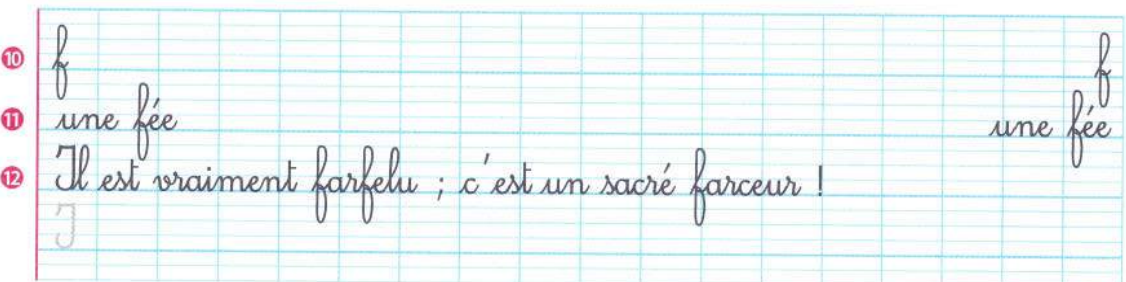 10 f f
11 une fée une fée
12 Il est vraiment farfelu ; c'est un sacré farceur !
I